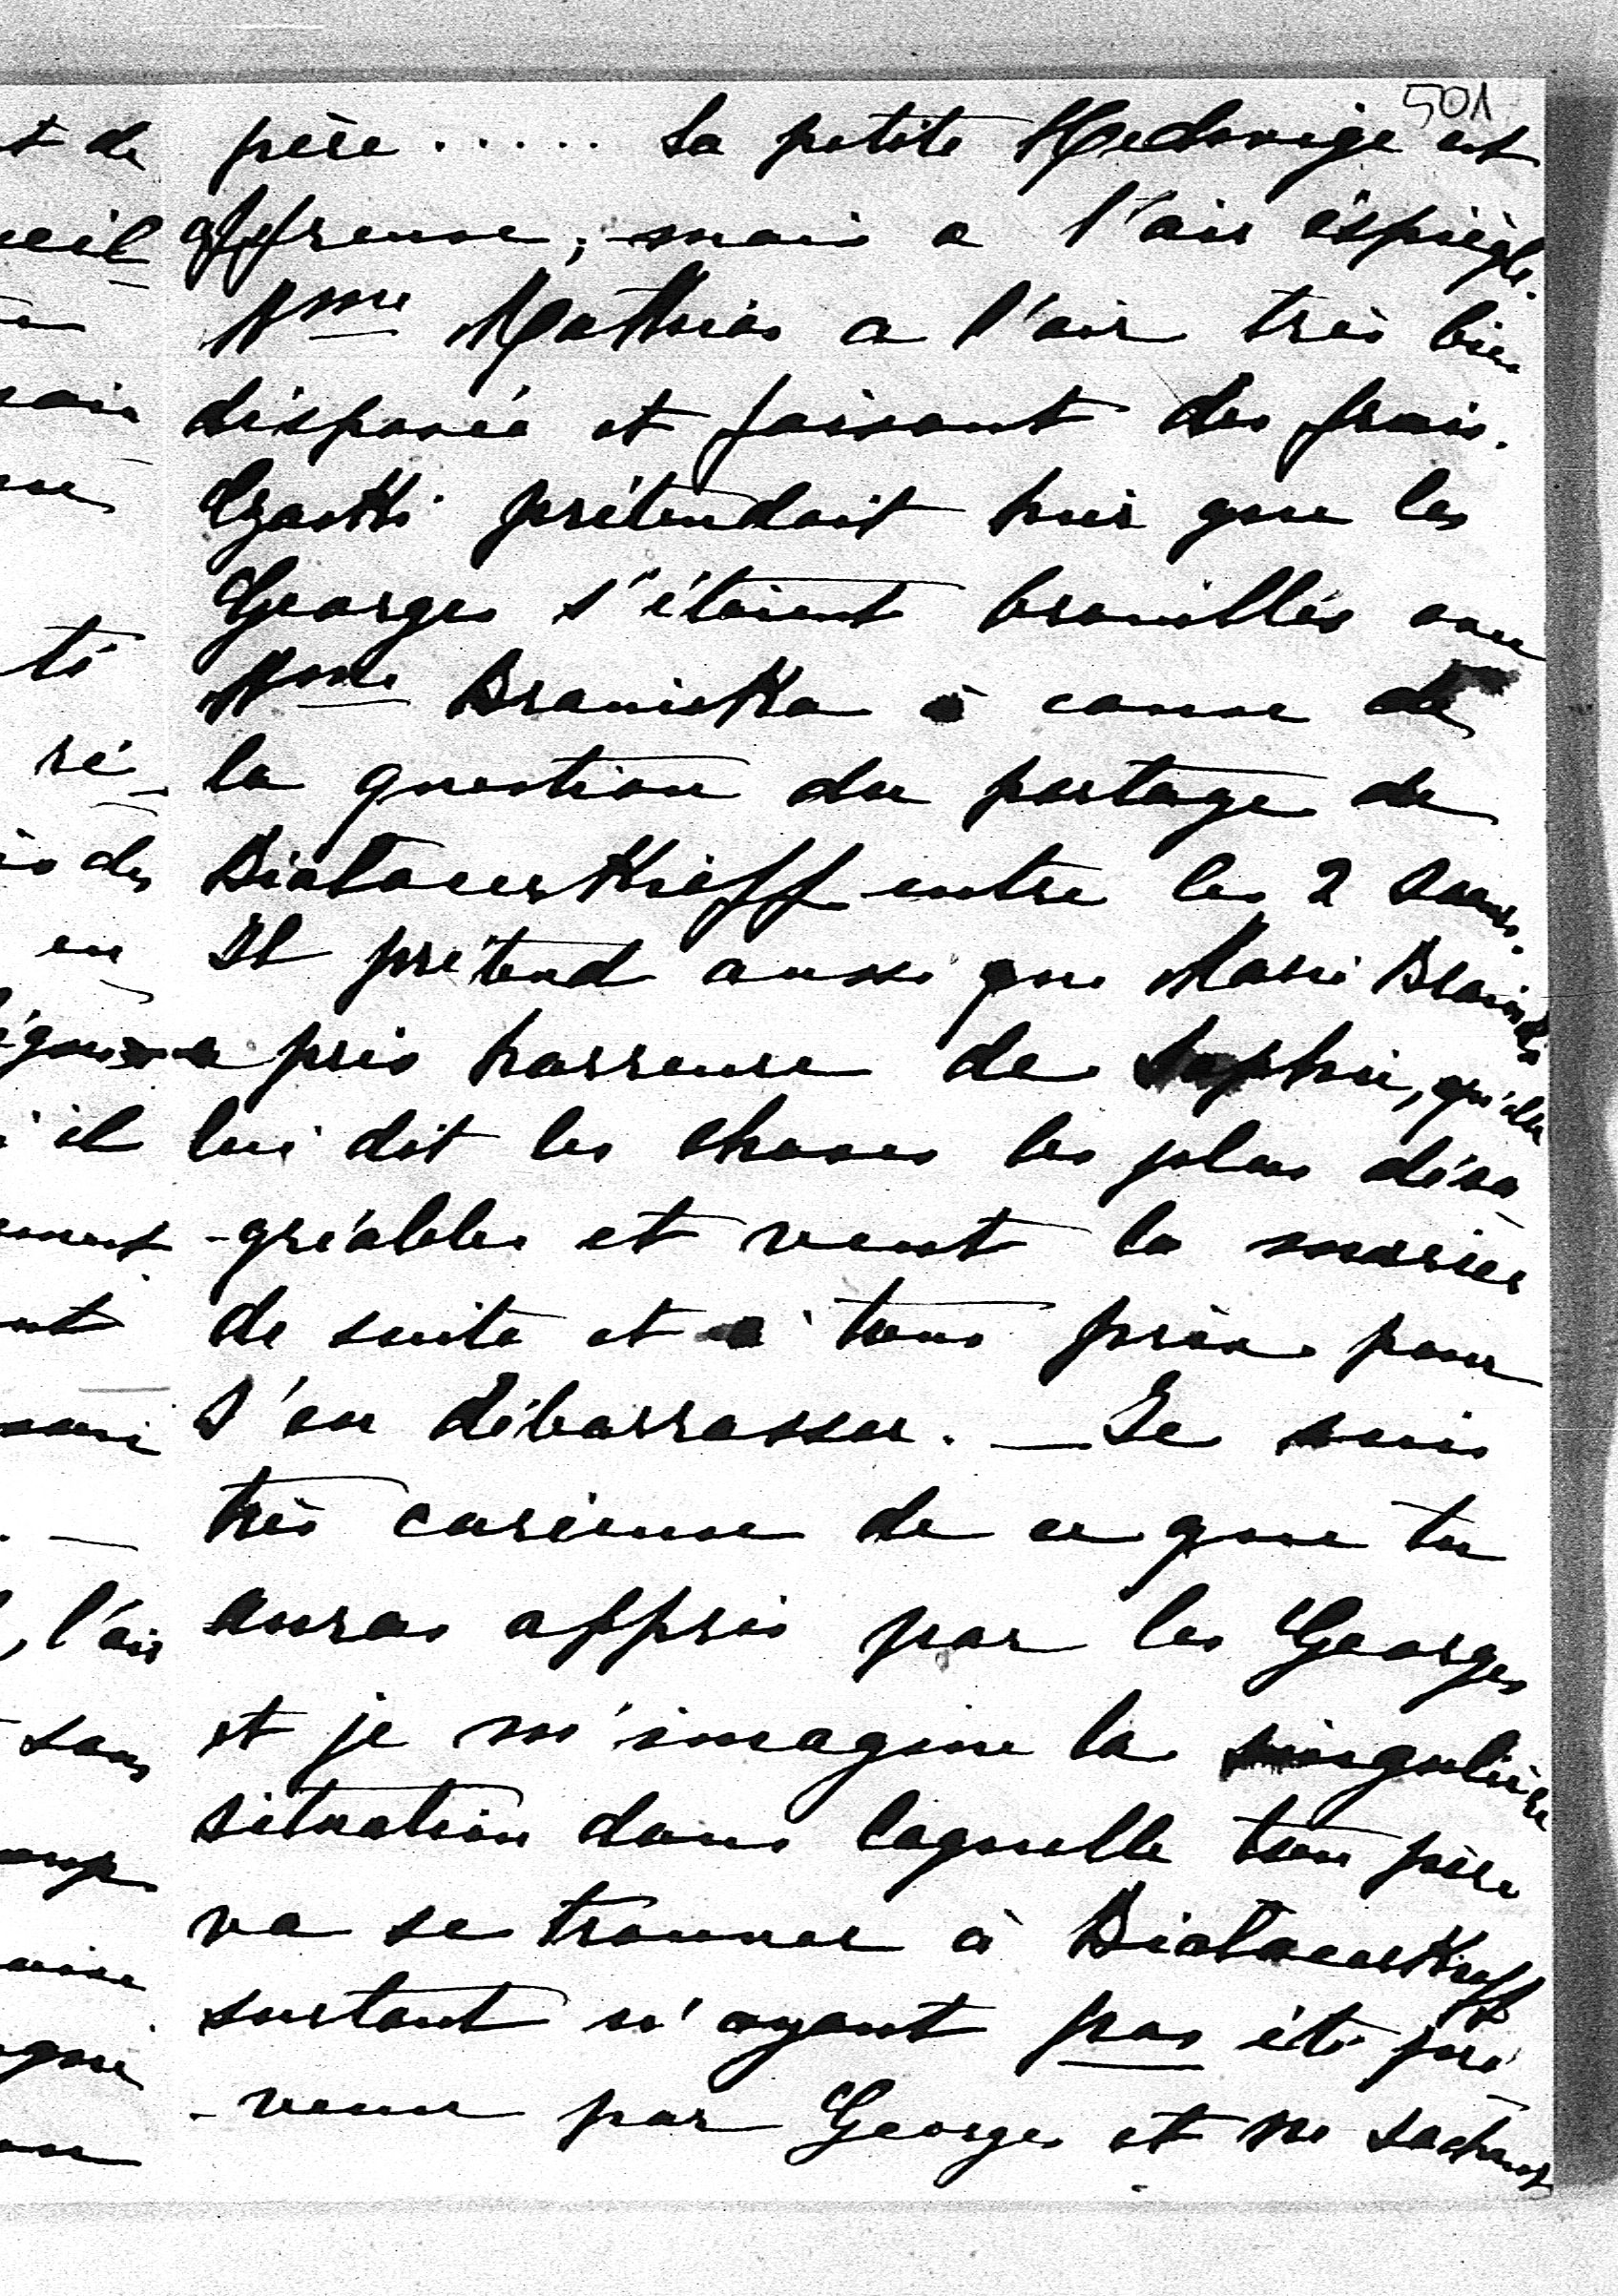 501
père ..... La petite Hedwige est
affreuse, mais a l'air éspiègle.
Mme Mathias a l'air très bien
disposée et faisant des frais.
prétendait hier que les
Georges s'étaient brouillés avec
Mme Braniska à cause de
la question du partage de
Biatacerkieff entre les 2 sœurs.
Il prétend aussi que Marie
a pris horreure de Sophie, qu'elle
lui dit les choses les plus désa
-gréables et veut la marier
de suite et à tous prix pour
s'en débarrasser. — Je suis
très curieuse de ce que tu
auras appris par les Georges
et je m'imagine la singulière
situation dans laquelle ton père
va se trouver à Biatacerkieff
surtout n'ayant pas été pré
-venu par Georges et ne sachant